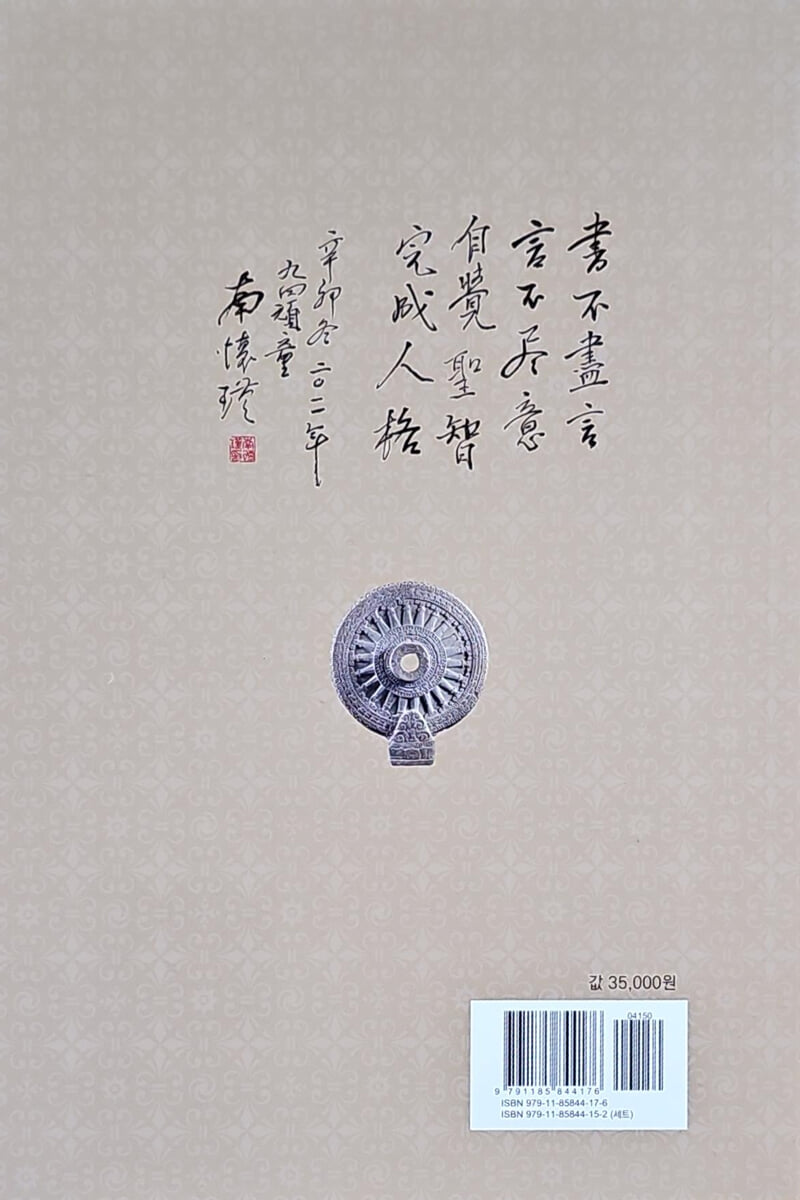 書不盡言
言不尽意
自覺聖智
完成人格
辛卯冬二〇一一年
九四頑童
南懷瑾
값 35,000원
04150
9 791185 844176
ISBN 979-11-85844-17-6
ISBN 979-11-85844-15-2 (세트)